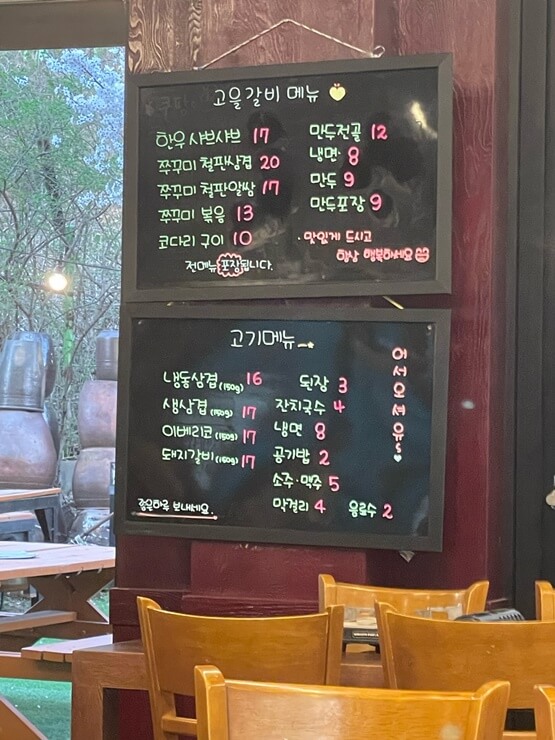 고을갈비 메뉴
한우 샤브샤브 17
쭈꾸미 철판삼겹 20
쭈꾸미 철판알쌈 17
쭈꾸미 볶음 13
코다리 구이 10
전메뉴 포장됩니다.
만두전골 12
냉면 8
만두 9
만두포장 9
· 맛있게 드시고
항상 행복하세요
고기메뉴
냉동삼겹 (150g) 16
생삼겹 (150g) 17
이베리코 (150g) 17
돼지갈비 (150g) 17
좋은하루 보내세요.
된장 3
잔치국수 4
냉면 8
공기밥 2
소주·맥주 5
막걸리 4 음료수 2
어서오셔유~